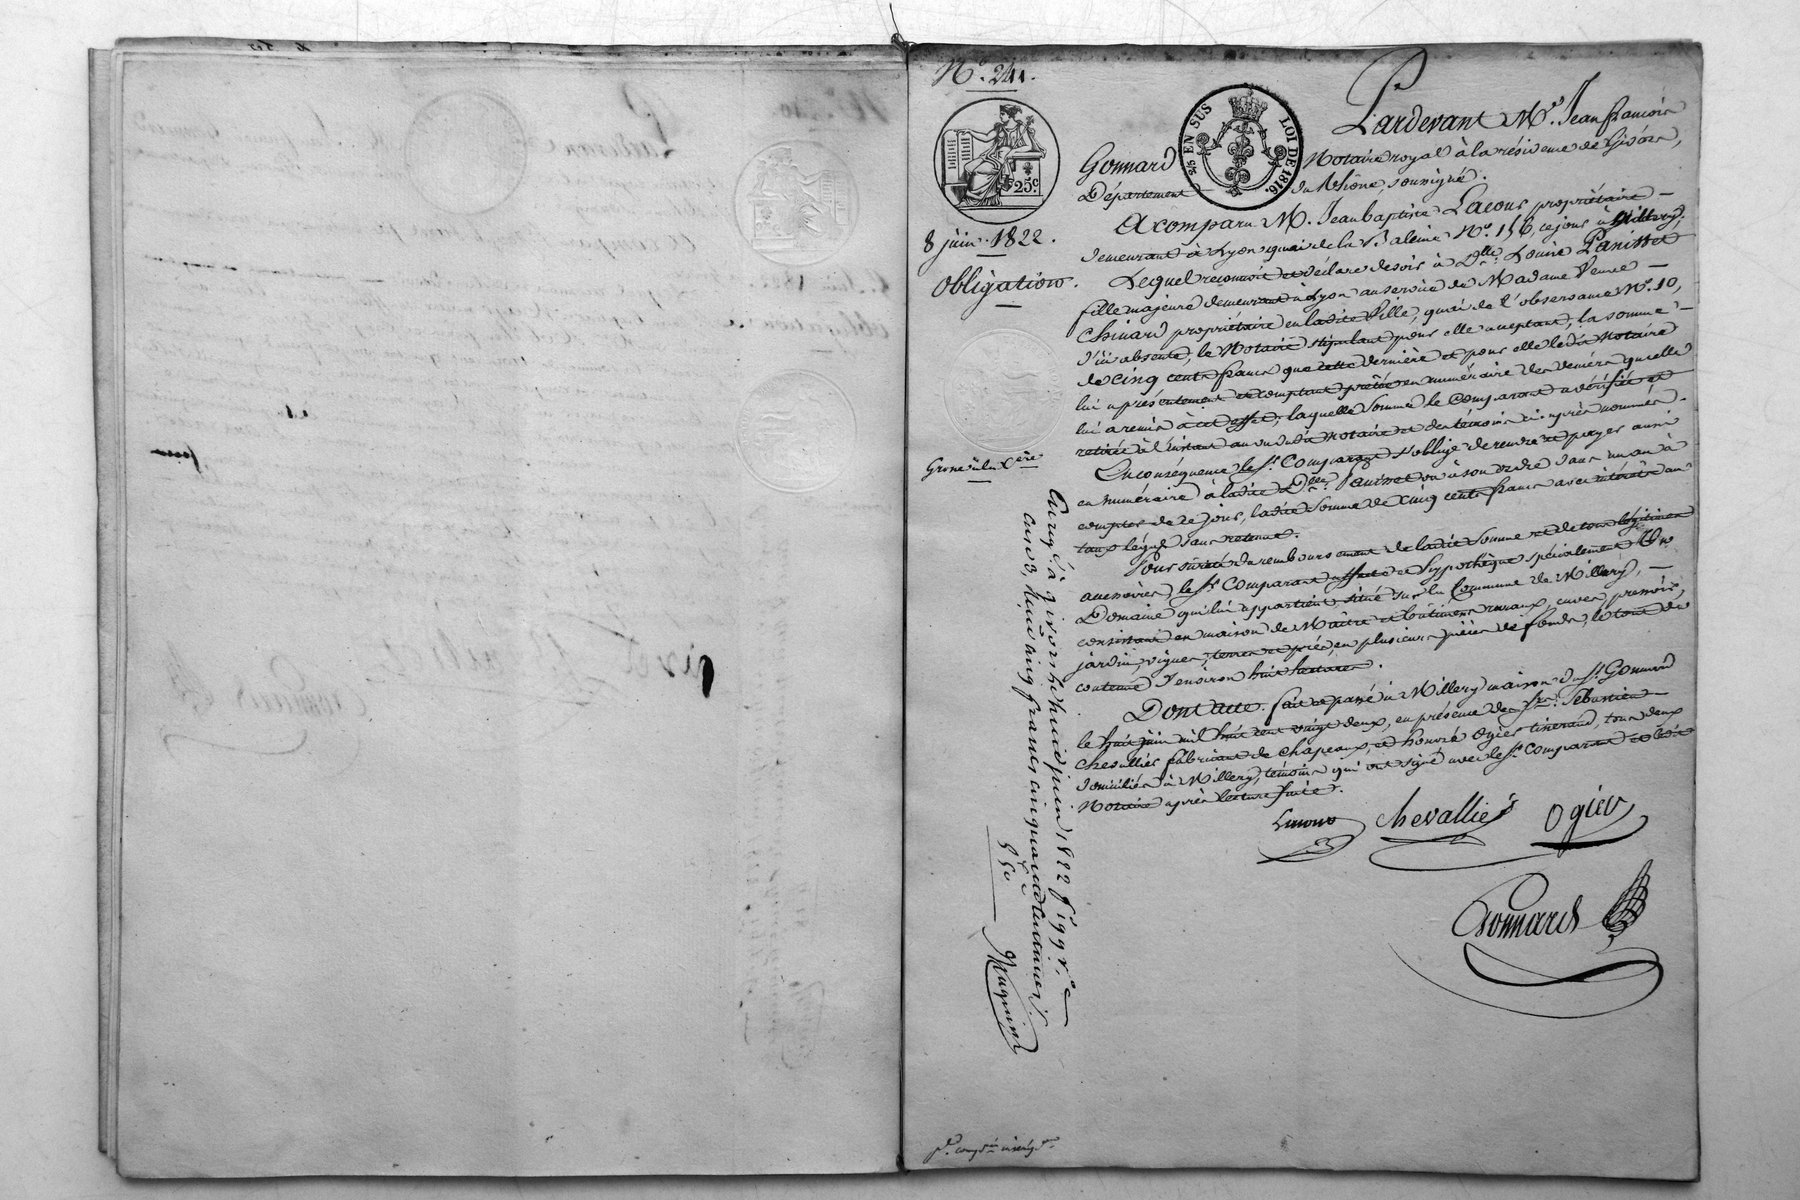 N.° 241.
25c
2/5 EN SUS
LOI DE 1816.
8 juin 1822.
Obligation.
Pardevant M.e Jean françois
Gonnard Notaire royal à la résidence de Givors,
Département du Rhône, soussigné.
A comparu M. Jean baptiste Lacour propriétaire
demeurant à Lyon quai de la Baleine N.° 156, ce jour à Millery;
Lequel reconnoit et déclare devoir à D.lle Louise Panisset
fille majeure demeurant à Lyon au service de Madame Veuve
Chinard propriétaire en ladite Ville, quai de l'observance N.° 10,
d'ici absente, le Notaire stipulant pour elle acceptant, la somme
de cinq cents francs que cette dernière et pour elle ledit Notaire
lui a présentement et comptant prêtée en numéraire des deniers qu'elle
lui a remis à cet effet, laquelle somme le Comparant a vérifiée et
retirée à l'instant au vu dudit Notaire et des témoins ci-après nommés.
En conséquence le S.r Comparant s'oblige de rendre et payer aussi
en numéraire à ladite D.lle Panisset ou à son ordre dans un an à
compter de ce jour, ladite somme de cinq cents francs avec intérêts au
taux légal sans retenue.
Pour sûreté du remboursement de ladite somme et de tous légitimes
accessoires, le S.r Comparant affecte et hypothèque spécialement Un
Domaine qui lui appartient, situé sur la Commune de Millery,
consistant en maison de Maître et bâtiments ruraux, cuves, pressoir,
jardin, vignes, terres et prés, en plusieurs pièces de fonds, le tout de
contenue d'environ huit hectares.
Dont acte. fait et passé à Millery maison du S.r Gonnard
le huit juin mil huit cent vingt deux, en présence de S.rs Sébastien
Chevallier fabricant de chapeaux, et honoré Ogier tisserand, tous deux
domiciliés à Millery, témoins qui ont signé avec le S.r Comparant et led.t
Notaire après lecture faite.
Lacour Chevallier Ogier
Gonnard
Enreg.é à givors le huit juin 1822 f.° 99 r.°
case 3, reçu cinq francs cinquante centimes
5 50